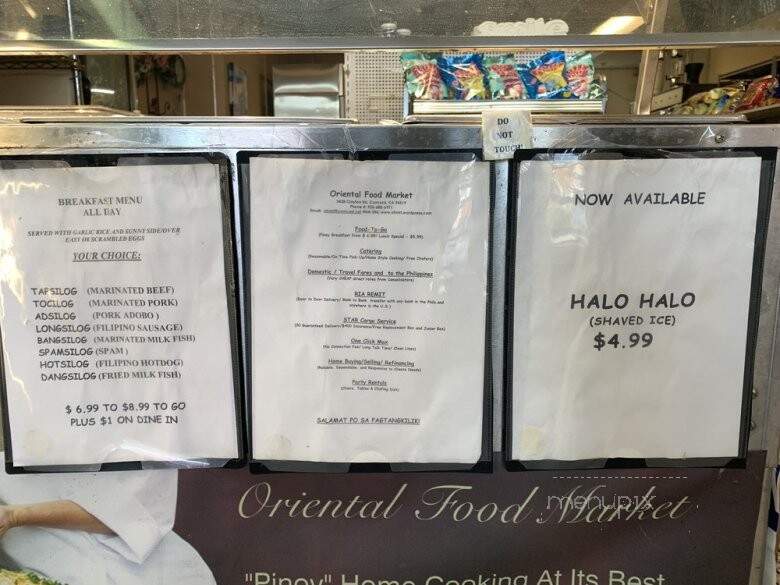 DO
NOT
TOUCH
BREAKFAST MENU
ALL DAY
SERVED WITH GARLIC RICE AND SUNNY SIDE/OVER
EASY OR SCRAMBLED EGGS
YOUR CHOICE:
TAPSILOG (MARINATED BEEF)
TOCILOG (MARINATED PORK)
ADSILOG (PORK ADOBO)
LONGSILOG (FILIPINO SAUSAGE)
BANGSILOG (MARINATED MILK FISH)
SPAMSILOG (SPAM)
HOTSILOG (FILIPINO HOTDOG)
DANGSILOG (FRIED MILK FISH)
$ 6.99 TO $8.99 TO GO
PLUS $1 ON DINE IN
Oriental Food Market
Food-To-Go
Catering
Domestic / Travel Fares and to the Philippines
RIA REMIT
STAR Cargo Service
One Click Max
Home Buying/Selling/ Refinancing
Party Rentals
SALAMAT PO SA PAGTANGKILIK!
NOW AVAILABLE
HALO HALO
(SHAVED ICE)
$4.99
menupix
Oriental Food Market
"Pinoy" Home Cooking At Its Best